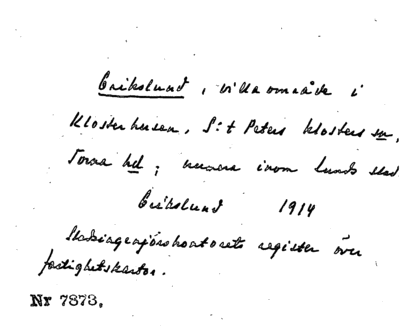 Erikslund, villaområde i
Klosterhusen, S:t Peters klosters sn,
Torna hd; numera inom Lunds stad
Erikslund 1914
Stadsingenjörskontorets register över
fastighetskartor.
Nr 7873.